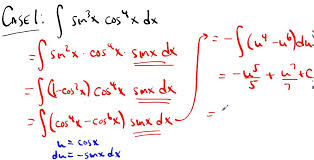 CASE 1: ∫ sin³x cos⁴x dx
= ∫ sin²x · cos⁴x · sinx dx
= ∫ (1-cos²x) cos⁴x sinx dx
= ∫ (cos⁴x - cos⁶x) sinx dx
u = cosx
du = -sinx dx
= -∫ (u⁴ - u⁶) du
= -u⁵/5 + u⁷/7 + C
=